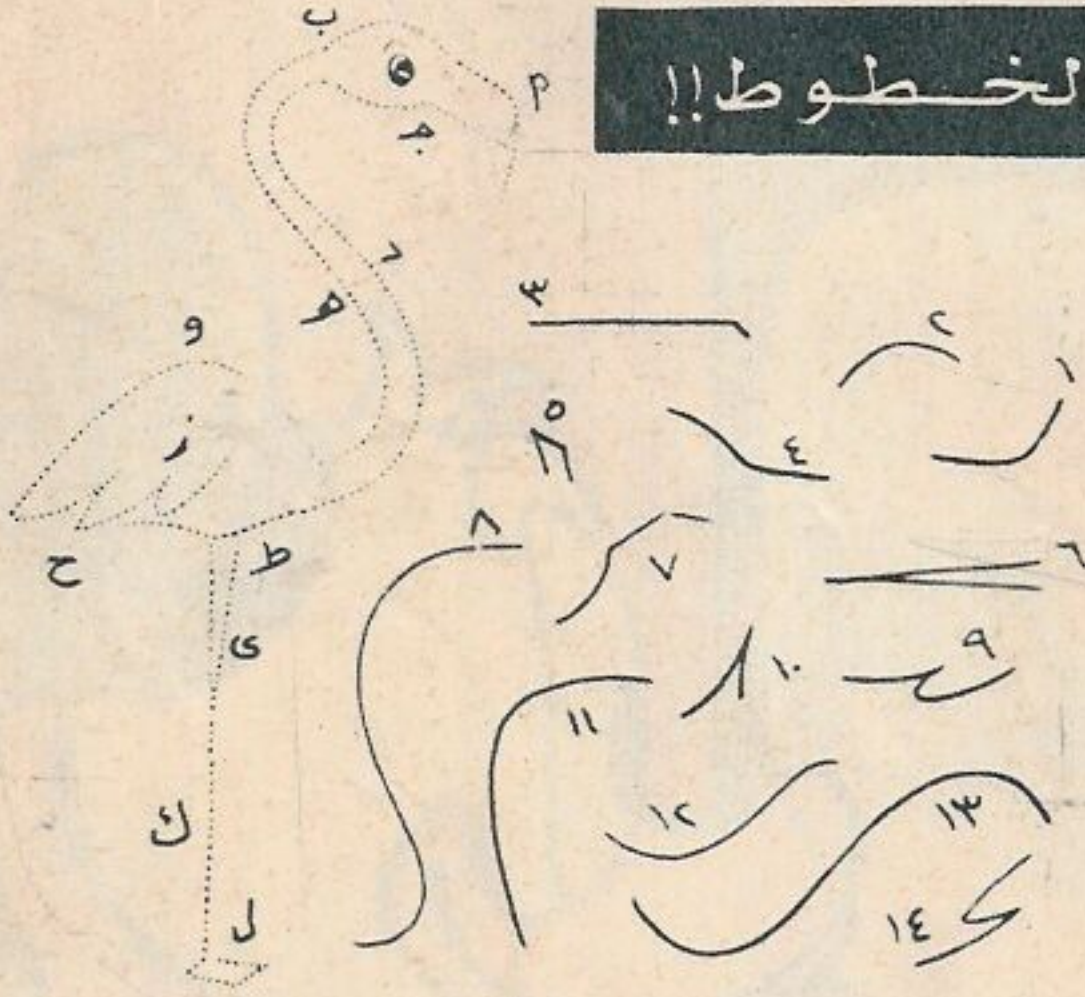 لخطوط!!
ب
م
ج
د
ه
و
ز
ح
ط
ى
ك
ل
١
٢
٣
٤
٥
٦
٧
٨
٩
١٠
١١
١٢
١٣
١٤